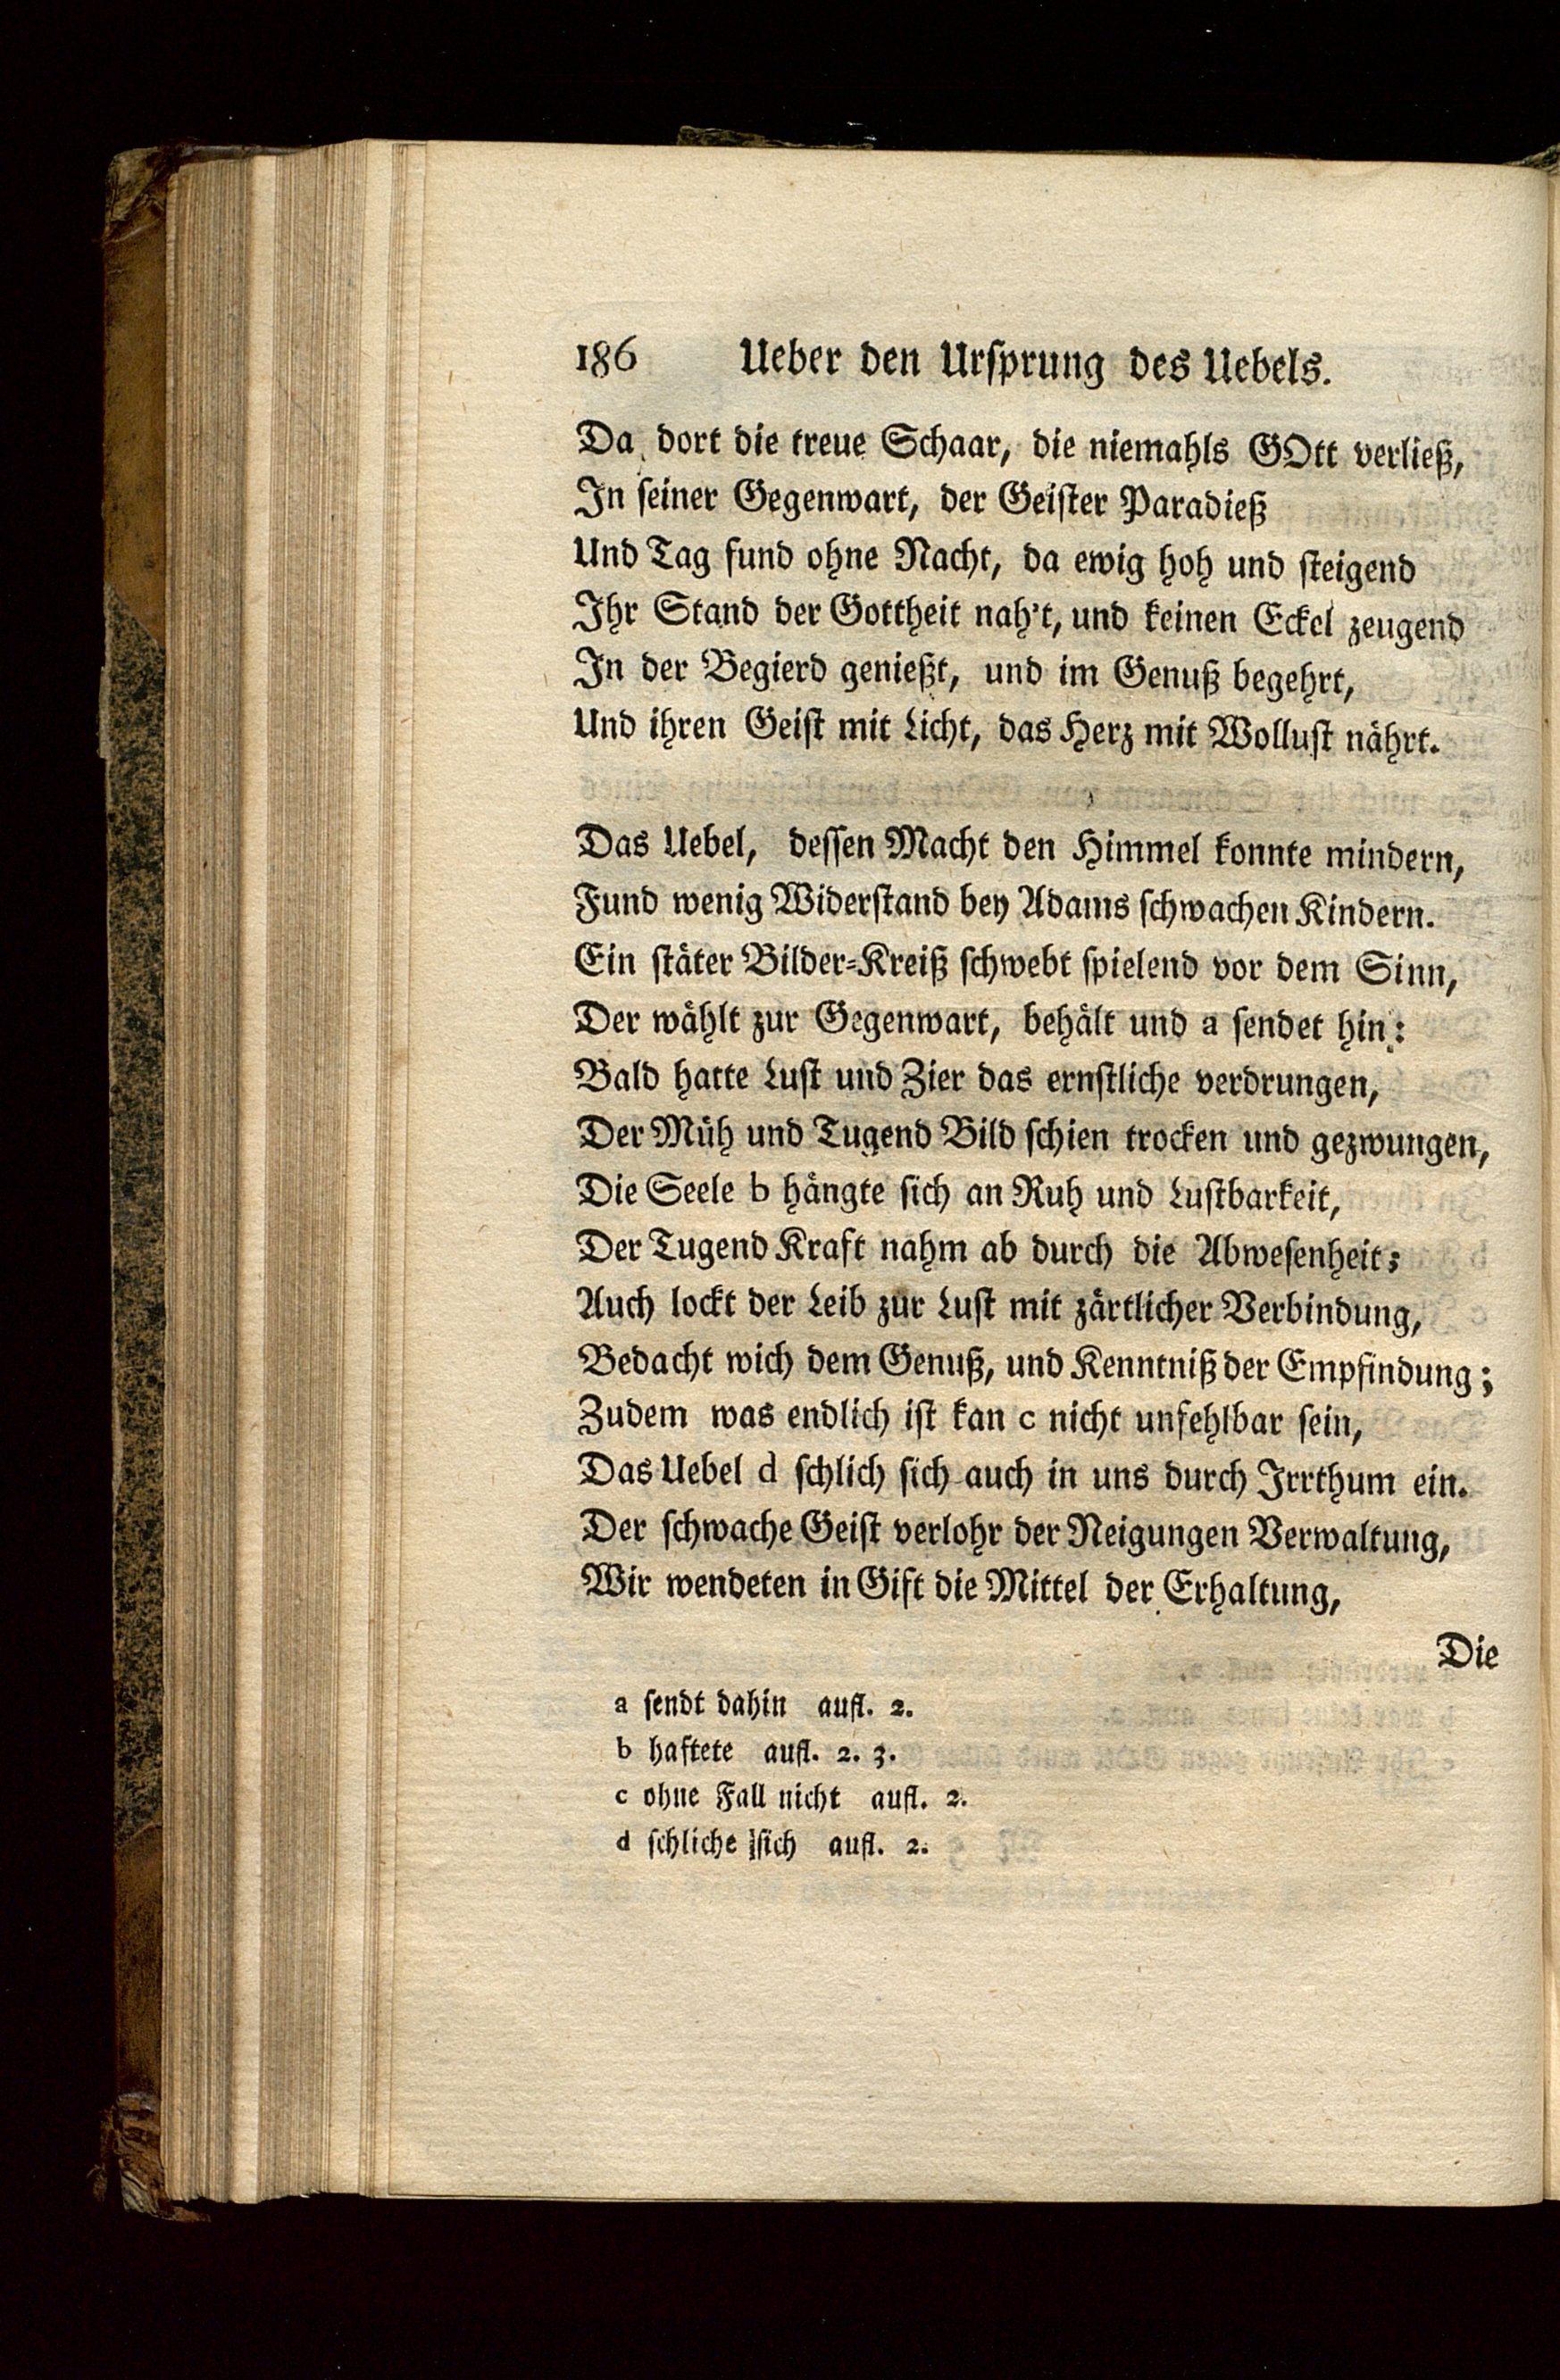 186 Ueber den Urſprung des Uebels.
Da dort die treue Schaar, die niemahls GOtt verließ,
In ſeiner Gegenwart, der Geiſter Paradieß
Und Tag fund ohne Nacht, da ewig hoh und ſteigend
Ihr Stand der Gottheit nah't, und keinen Eckel zeugend
In der Begierd genießt, und im Genuß begehrt,
Und ihren Geiſt mit Licht, das Herz mit Wolluſt nährt.
Das Uebel, deſſen Macht den Himmel konnte mindern,
Fund wenig Widerſtand bey Adams ſchwachen Kindern.
Ein ſtäter Bilder=Kreiß ſchwebt ſpielend vor dem Sinn,
Der wählt zur Gegenwart, behält und a ſendet hin:
Bald hatte Luſt und Zier das ernſtliche verdrungen,
Der Müh und Tugend Bild ſchien trocken und gezwungen,
Die Seele b hängte ſich an Ruh und Luſtbarkeit,
Der Tugend Kraft nahm ab durch die Abweſenheit;
Auch lockt der Leib zur Luſt mit zärtlicher Verbindung,
Bedacht wich dem Genuß, und Kenntniß der Empfindung;
Zudem was endlich iſt kan c nicht unfehlbar ſein,
Das Uebel d ſchlich ſich auch in uns durch Irrthum ein.
Der ſchwache Geiſt verlohr der Neigungen Verwaltung,
Wir wendeten in Gift die Mittel der Erhaltung,
Die
a ſendt dahin aufl. 2.
b haftete aufl. 2. 3.
c ohne Fall nicht aufl. 2.
d ſchliche ſich aufl. 2.